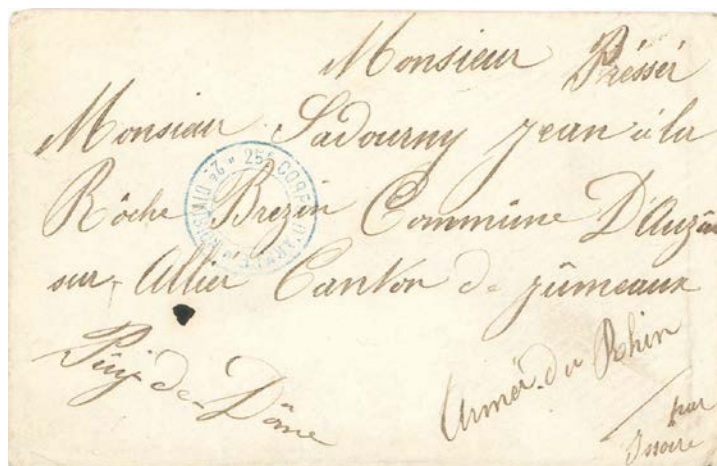 Monsieur Préssér
Monsieur Sadourny jean à la
Rôche Brezin Commune D'Auzat
sur Allier Canton de jûmeaux
Pûy de Dôme
Armér du Rhin
par
Issoire
25E CORPS D'ARMÉE * 2E DIVISION *